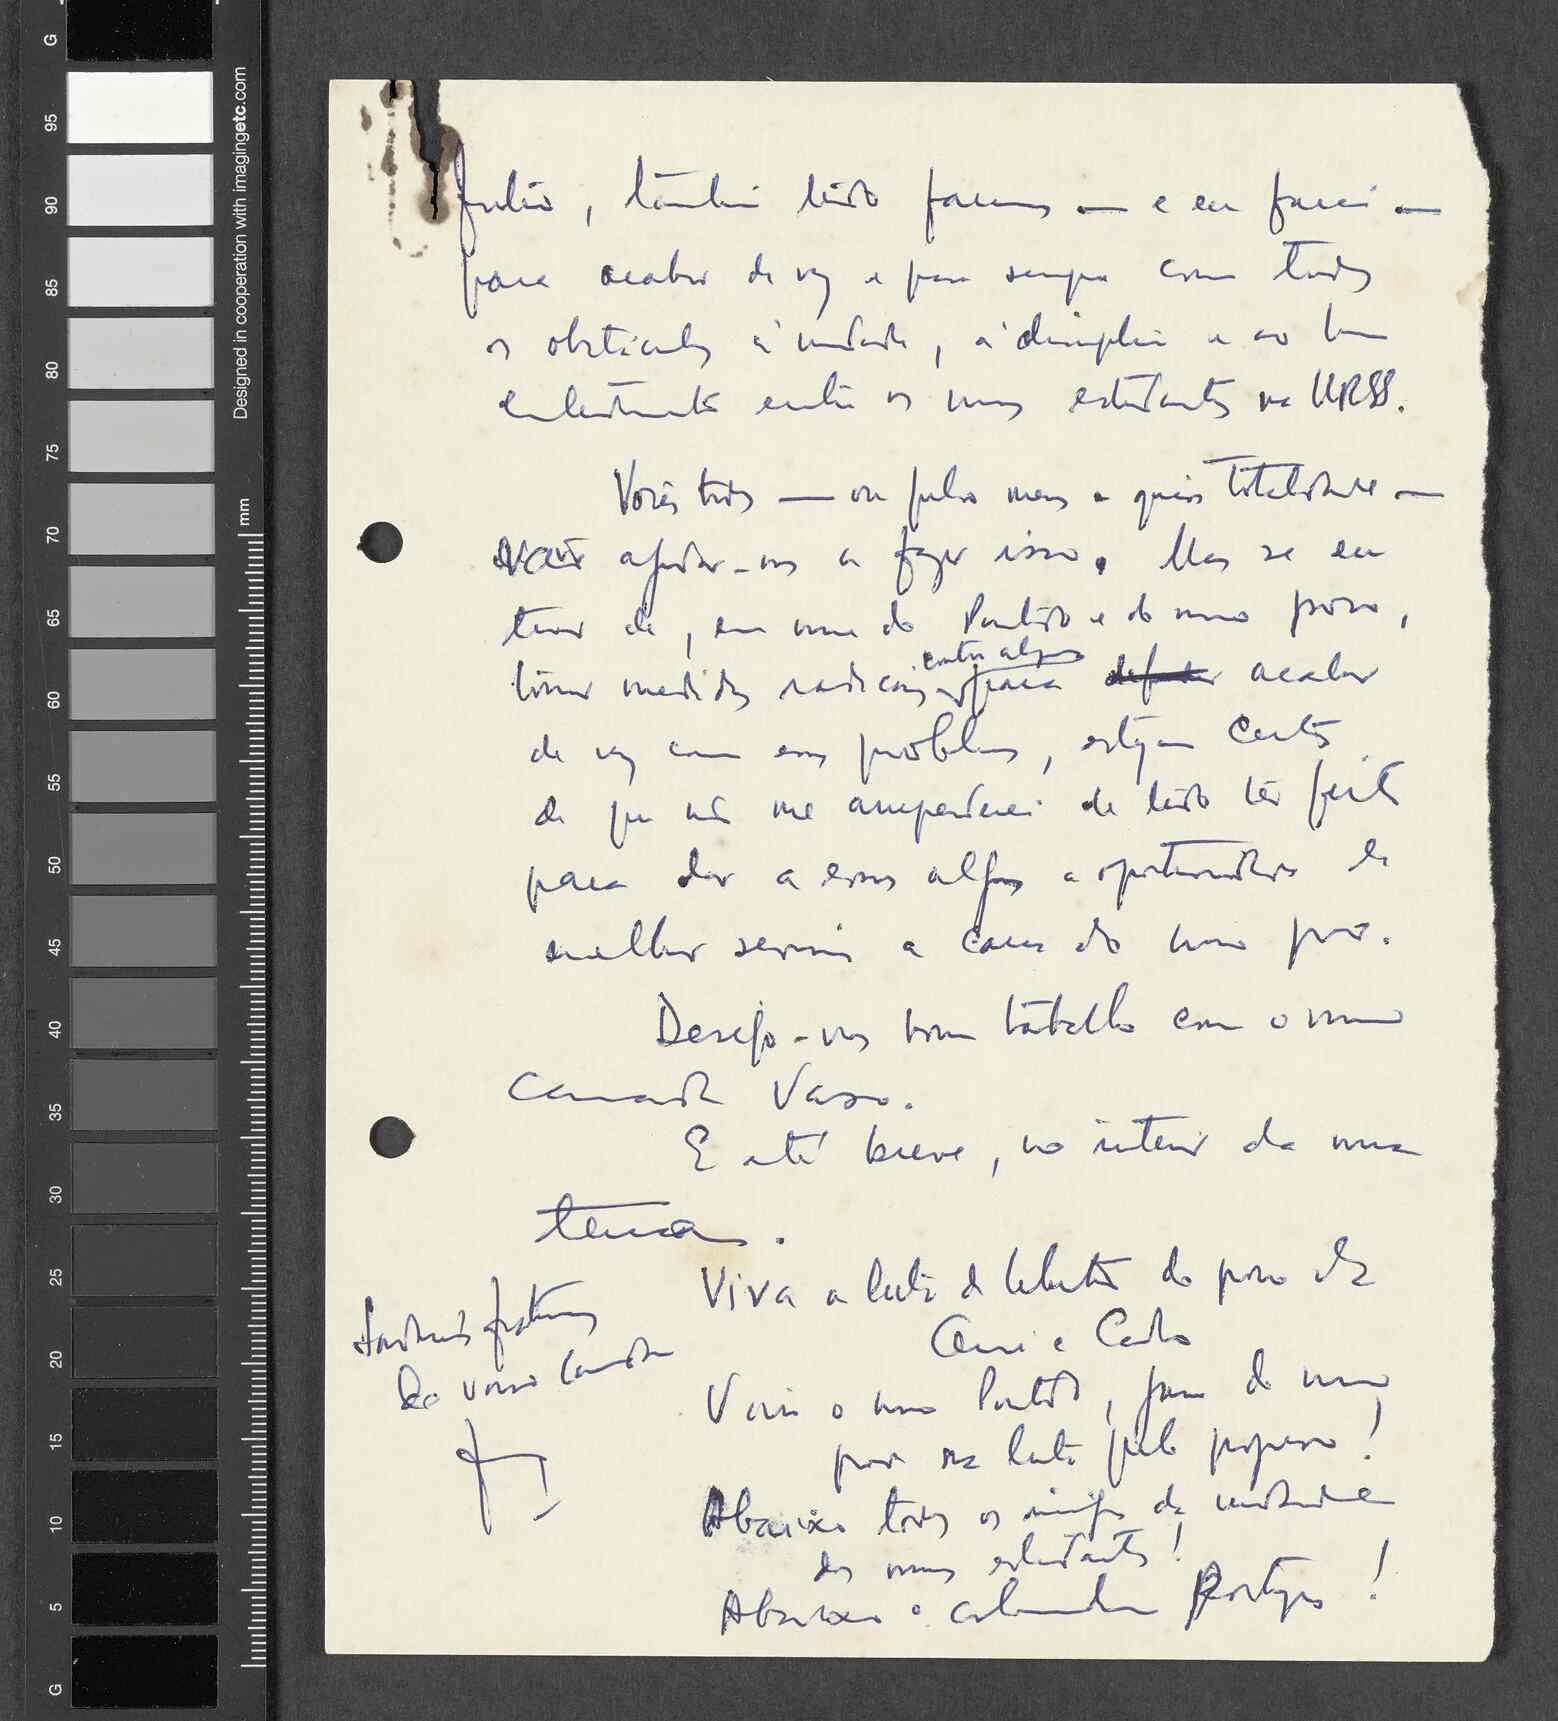 também tudo faremos — e eu farei —
para acabar de vez e para sempre com todos
os obstáculos à unidade, à disciplina e ao bom
entendimento entre os nossos estudantes na URSS.
Vocês todos — ou pelo menos a quasi totalidade —
ajudar-nos a fazer isso. Mas se eu
tiver de, em nome do Partido e do nosso povo,
contra alguns
tomar medidas radicais para acabar
de vez com esses problemas, estejam certos
de que não me arrependerei de tudo ter feito
para dar a esses alguns a oportunidade de
melhor servir a causa do nosso povo.
Desejo-vos bom trabalho com o nosso
camarada Vasco.
E até breve, no interior da nossa
terra.
Viva a luta de libertação do povo da
Guiné e Cabo
Viva o nosso Partido, força do nosso
povo na luta pelo progresso!
Abaixo todos os inimigos da unidade
dos nossos estudantes!
Abaixo o colonialismo Português!
Saudações fraternas
do vosso camarada
G
95
90
85
80
75
70
65
60
55
50
45
40
35
30
25
20
15
10
5
G
Designed in cooperation with imagingetc.com
mm